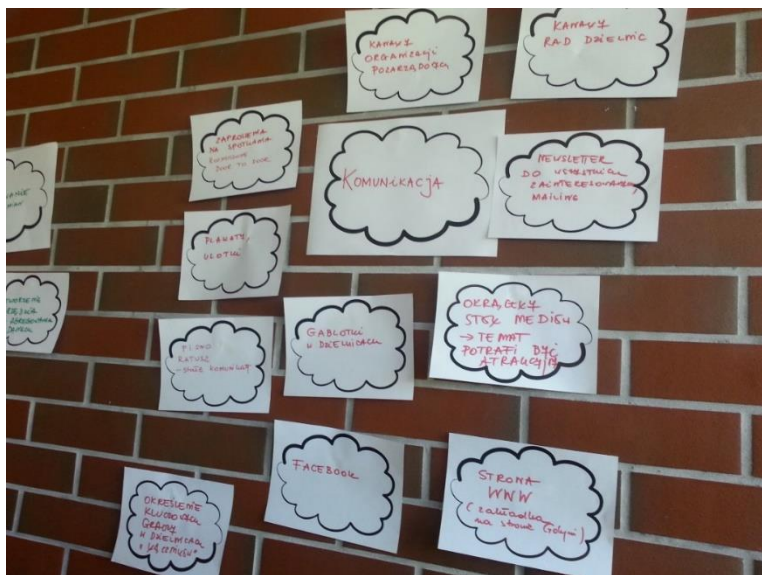 KANAŁY
ORGANIZACJI
POZARZĄDOWYCH
KANAŁY
RAD DZIELNIC
ZAPROSZENIA
NA SPOTKANIA
DOOR TO DOOR
KOMUNIKACJA
NEWSLETTER
DO WSZYSTKICH
ZAINTERESOWANYCH,
MAILING
PLAKATY,
ULOTKI
PISMO
RATUSZ
KOMUNIKATY
GABLOTKI
W DZIELNICACH
OKRĄGŁY
STÓŁ MEDIÓW
→ TEMAT
POTRAFI BYĆ
ATRAKCYJNY
OKREŚLENIE
KLUCZOWYCH
W DZIELNICACH
FACEBOOK
STRONA
WWW
(zakładka
na stronie Gdyni)